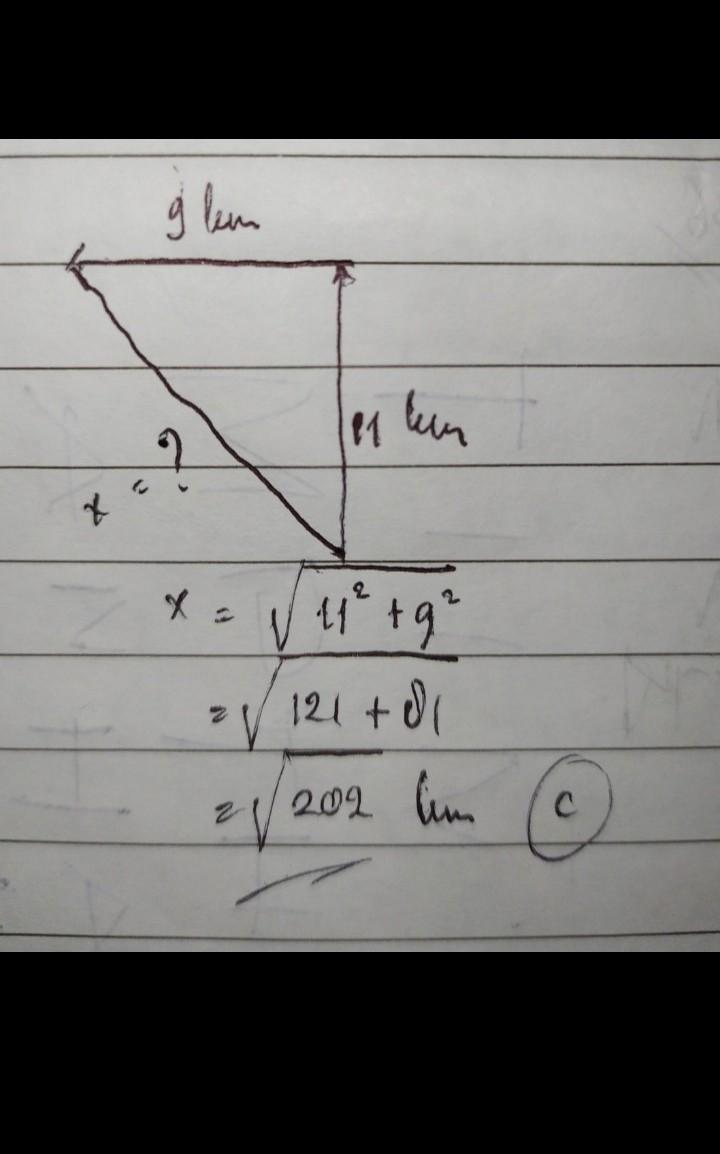 9 km
11 km
x = ?
x = √11² + 9²
= √121 + 81
= √202 km C